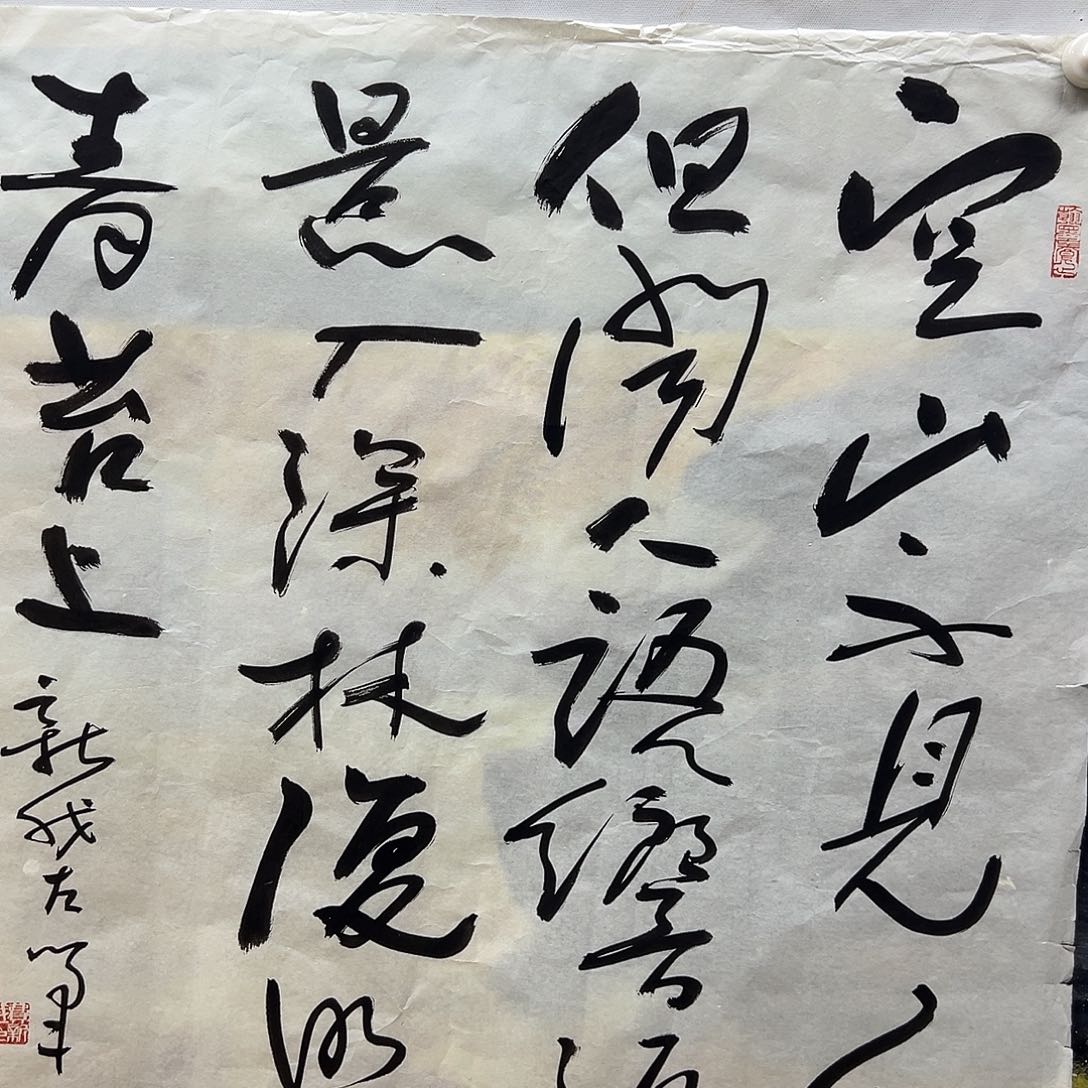 空山不見
但聞人語響
景入深林復
青苔上
新我左筆